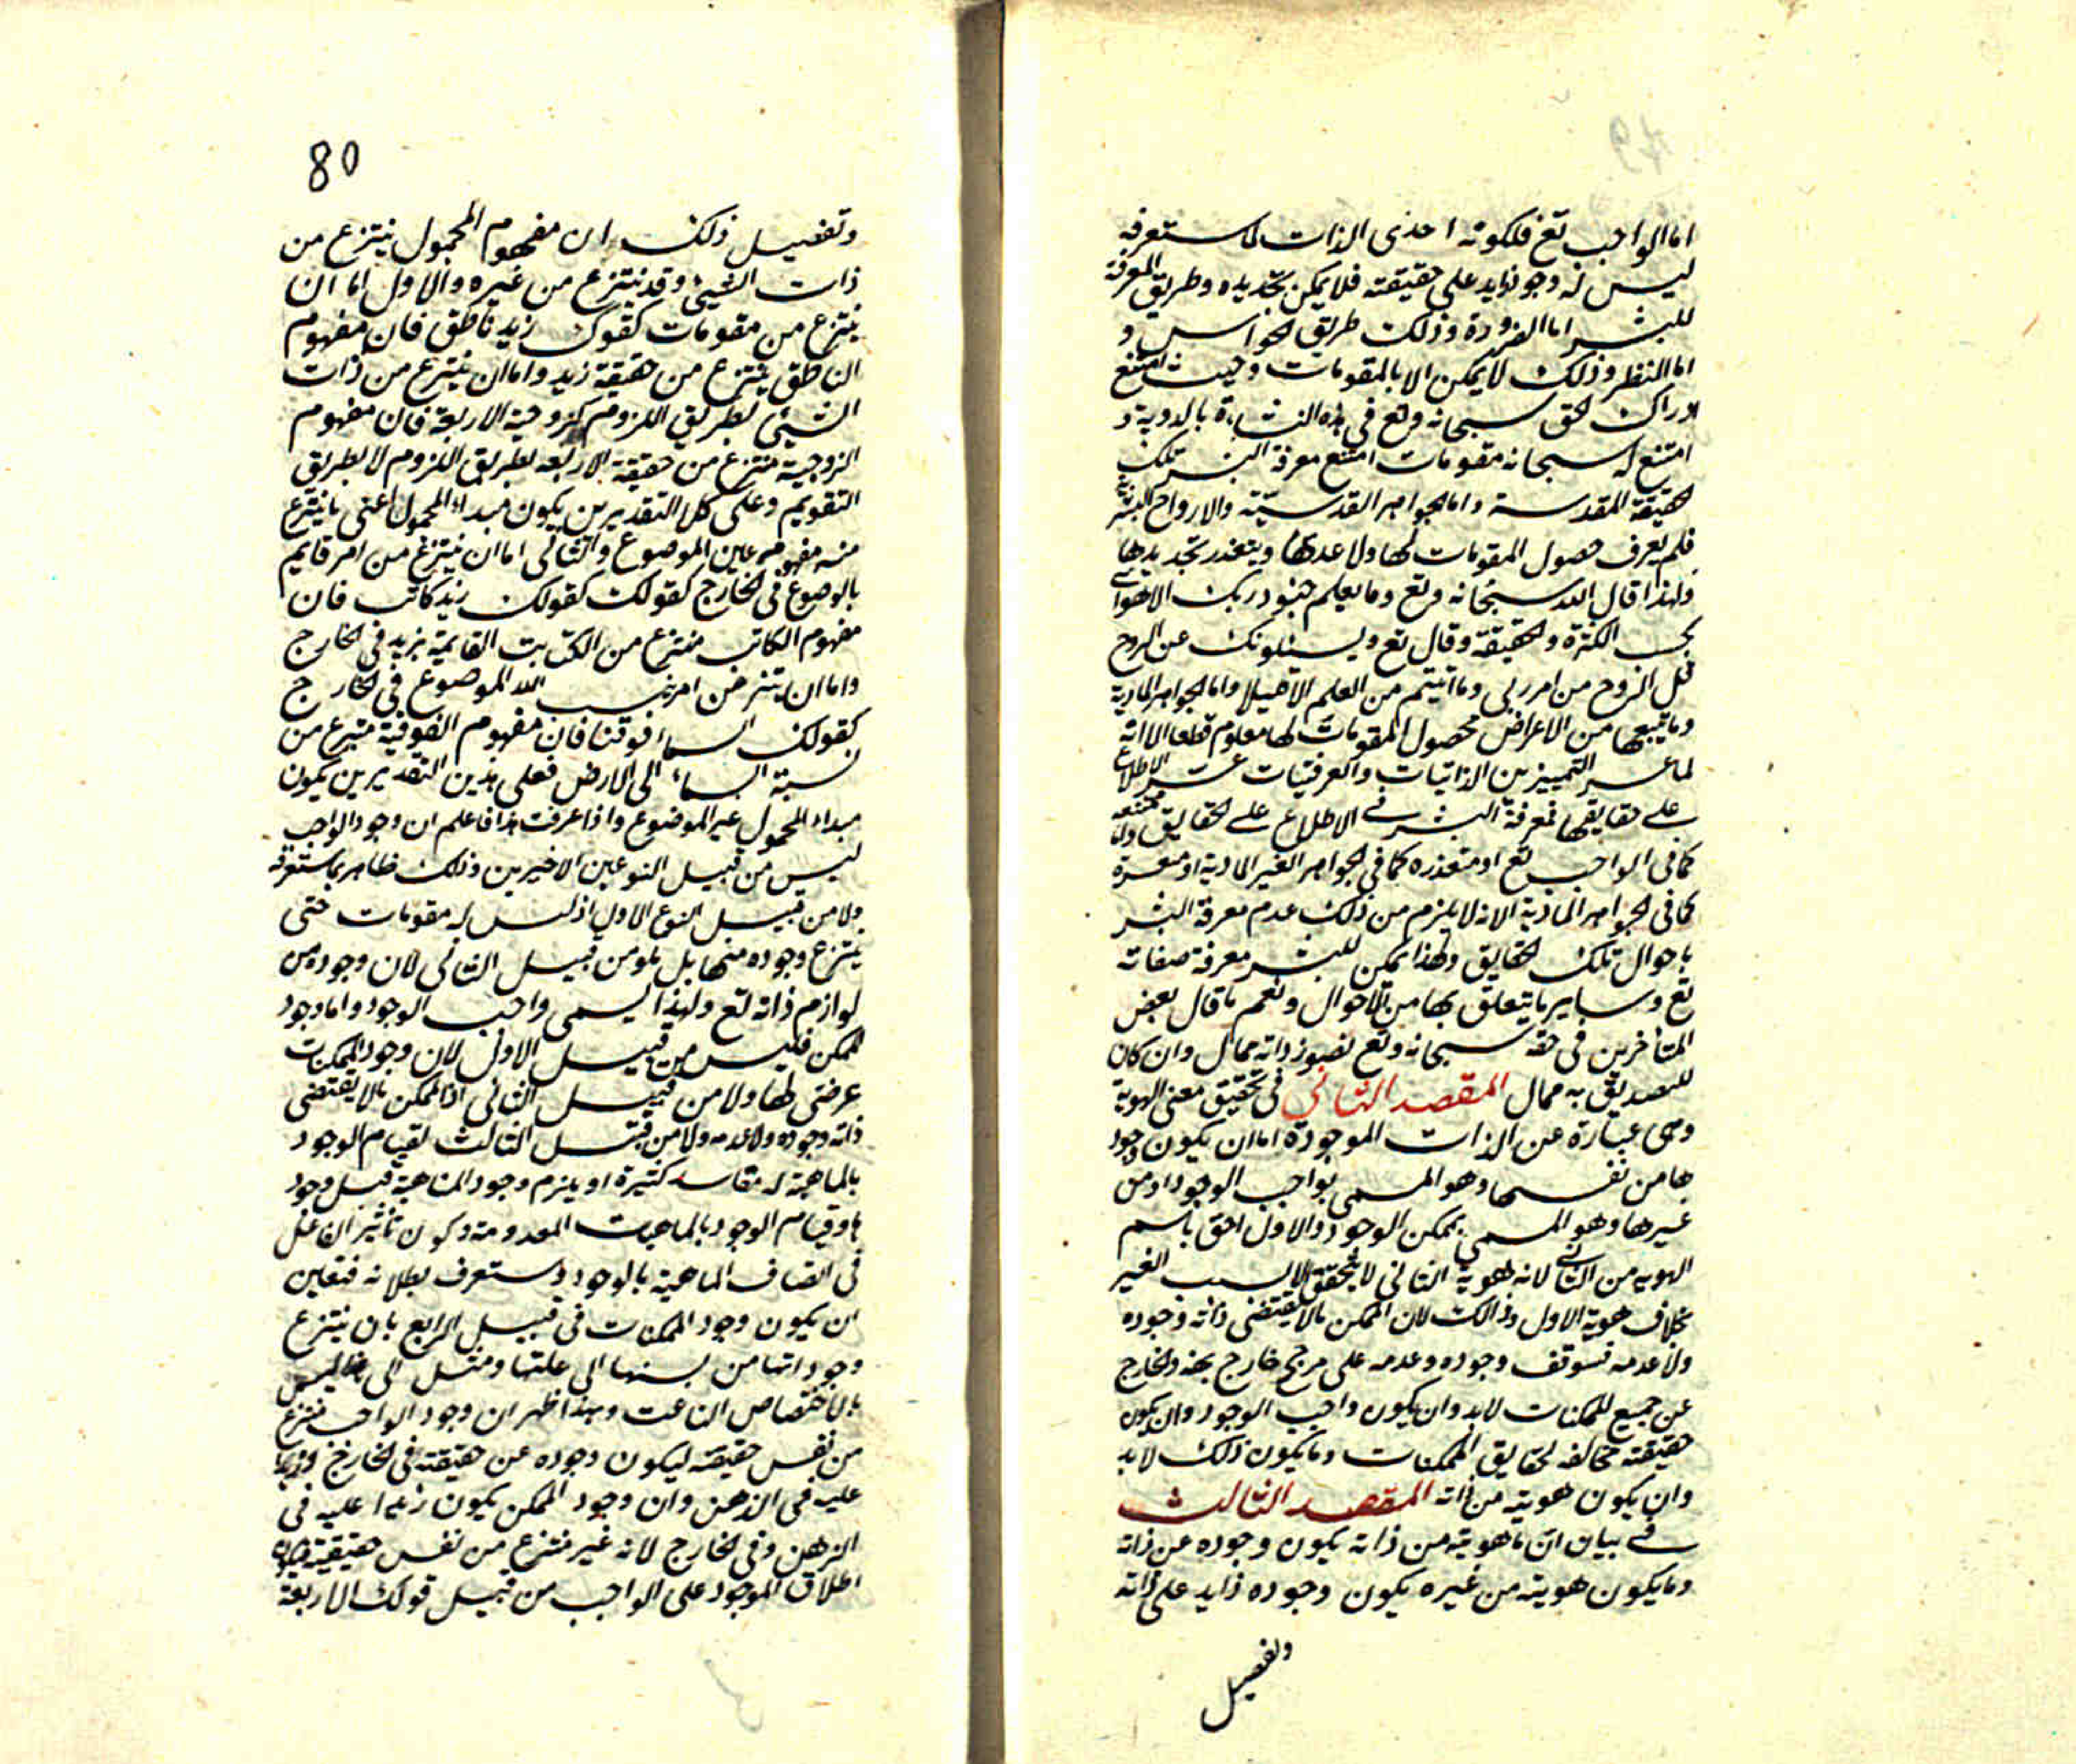 اما الواجب تع فلكونه احدى الذات لما ستعرفه
ليس له وجود زايد على حقيقته فلا يمكن تحديده وطريق المعرفة
للبشر اما الضرورة وذلك طريق الحواس و
اما النظر وذلك لا يمكن الا بالمقومات وحيث امتنع
ادراك الحق سبحانه وتع في هذه النشاءة بالبدوية و
امتنع له سبحانه مقومات امتنع معرفة البشر تلك
الحقيقة المقدسة واما الجواهر القدسيّة والارواح البشرية
فلم يعرف حصول المقومات لها ولا عدمها ويتعذر تحديدها
ولهذا قال الله سبحانه وتع وما يعلم جنود ربك الا هو اى
بحسب الكثرة والحقيقة وقال تع ويسئلونك عن الروح
قل الروح من امر ربى وما اتيتم من العلم الا قليلا واما الجواهر المادية
وما يتبعها من الاعراض فحصول المقومات لها معلوم قطعا الا انه
لما عسر التمييز بين الذاتيات والعرضيات عسر الاطلاع
على حقايقها فمعرفة البشر في الاطلاع على الحقايق ممتنعه
كما فى الواجب تع او متعذره كما في الجواهر الغير المادية او متعسرة
كما فى الجواهر المادية الا انه لا يلزم من ذلك عدم معرفة البشر
باحوال تلك الحقايق ولهذا يمكن للبشر معرفة صفاته
تع وساير ما يتعلق بها من الاحوال ونعم ما قال بعض
المتأخرين فى حقه سبحانه وتع تصور ذاته محال وان كان
للتصديق به مجال المقصد الثانى فى تحقيق معنى الهوية
وهى عبارة عن الذات الموجودة اما ان يكون وجود
ها من نفسها وهو المسمى بواجب الوجود او من
غيرها وهو المسمى بممكن الوجود والاول احق باسم
الهويه من الثانى لانه هوية الثانى لا يتحقق الا بسبب الغير
بخلاف هوية الاول وذالك لان الممكن ما لا يقتضى ذاته وجوده
ولا عدمه فيتوقف وجوده وعدمه على مرجح خارج عنه والخارج
عن جميع الممكنات لابد وان يكون واجب الوجود وان يكون
حقيقته مخالفه لحقايق الممكنات وما يكون ذلك لابد
وان يكون هويته من ذاته المقصد الثالث
في بيان ان ما هويته من ذاته يكون وجوده عين ذاته
وما يكون هويته من غيره يكون وجوده زايد على ذاته
وتفصيل
80
وتفصيل ذلك ان مفهوم المحمول ينتزع من
ذات الشيئ وقد ينتزع من غيره والاول اما ان
ينتزع من مقومات كقولك زيد ناطق فان مفهوم
الناطق ينتزع من حقيقة زيد واما ان ينتزع من ذات
الشيئ بطريق اللزوم كزوجية الاربعة فان مفهوم
الزوجية منتزع من حقيقة الاربعه بطريق اللزوم لا بطريق
التقويم وعلى كلا التقديرين يكون مبداء المحمول اعنى ما ينتزع
منه مفهومه عين الموضوع والثانى اما ان ينتزع من امر قايم
بالموضوع فى الخارج كقولك كقولك زيد كاتب فان
مفهوم الكاتب منتزع من الكتابت القايمة بزيد فى الخارج
واما ان ينتزع من امر نسب الله الموضوع فى الخارج
كقولك السماء فوقنا فان مفهوم الفوقية منتزع من
نسبة السماء الى الارض فعلى هذين التقديرين يكون
مبداء المحمول غير الموضوع واذا عرفت هذا فاعلم ان وجود الواجب
ليس من قبيل النوعين الاخيرين وذلك ظاهر بما ستعرفه
ولا من قبيل النوع الاول اذ ليس له مقومات حتى
ينتزع وجوده منها بل هو من قبيل الثانى لان وجوده من
لوازم ذاته تع ولهذا يسمى واجب الوجود واما وجود
الممكن فليس من قبيل الاول لان وجود الممكنات
عرضى لها ولا من قبيل الثانى اذ الممكن ما لا يقتضى
ذاته وجوده ولا عدمه ولا من قبيل الثالث لقيام الوجود
بالماهية له مفاسد كثيرة او يلزم وجود الماهية قبل وجود
ها وقيام الوجود بالماهيات المعدومة وكون تأثير الفاعل
فى اتصاف الماهية بالوجود وستعرف بطلانه فتعين
ان يكون وجود الممكنات فى قبيل الرابع بان ينتزع
وجوداتها من نسبتها الى علتها
بالاختصاص الناعت وبهذا ظهر ان وجود الواجب منتزع
من نفس حقيقته ليكون وجوده عين حقيقته فى الخارج وزايدا
عليه فى الذهن وان وجود الممكن يكون زايدا عليه فى
الذهن وفى الخارج لانه غير منتزع من نفس حقيقيته
اطلاق الموجود على الواجب من قبيل قولك الاربعة